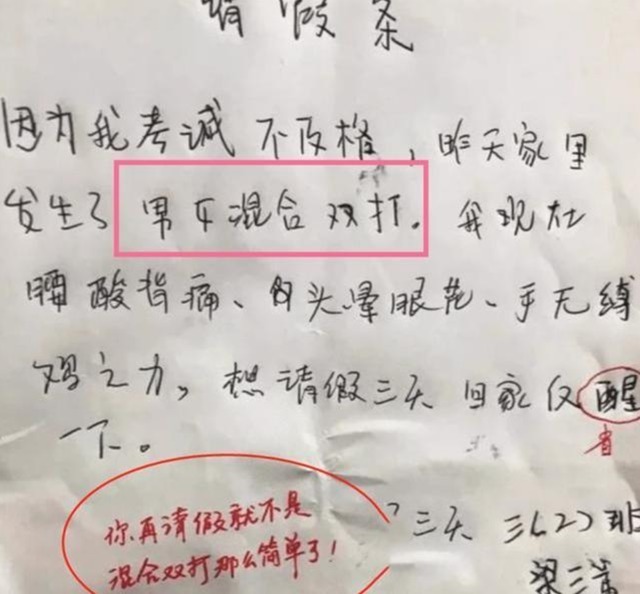 请假条
因为我考诚不及格,昨天家里
发生了男女混合双打。我现在
腰酸背痛、头晕眼花、手无缚
鸡之力,想请假三天回家仅醒
省
一下。
三天 三(2)班
你再请假就不是
混合双打那么简单了!